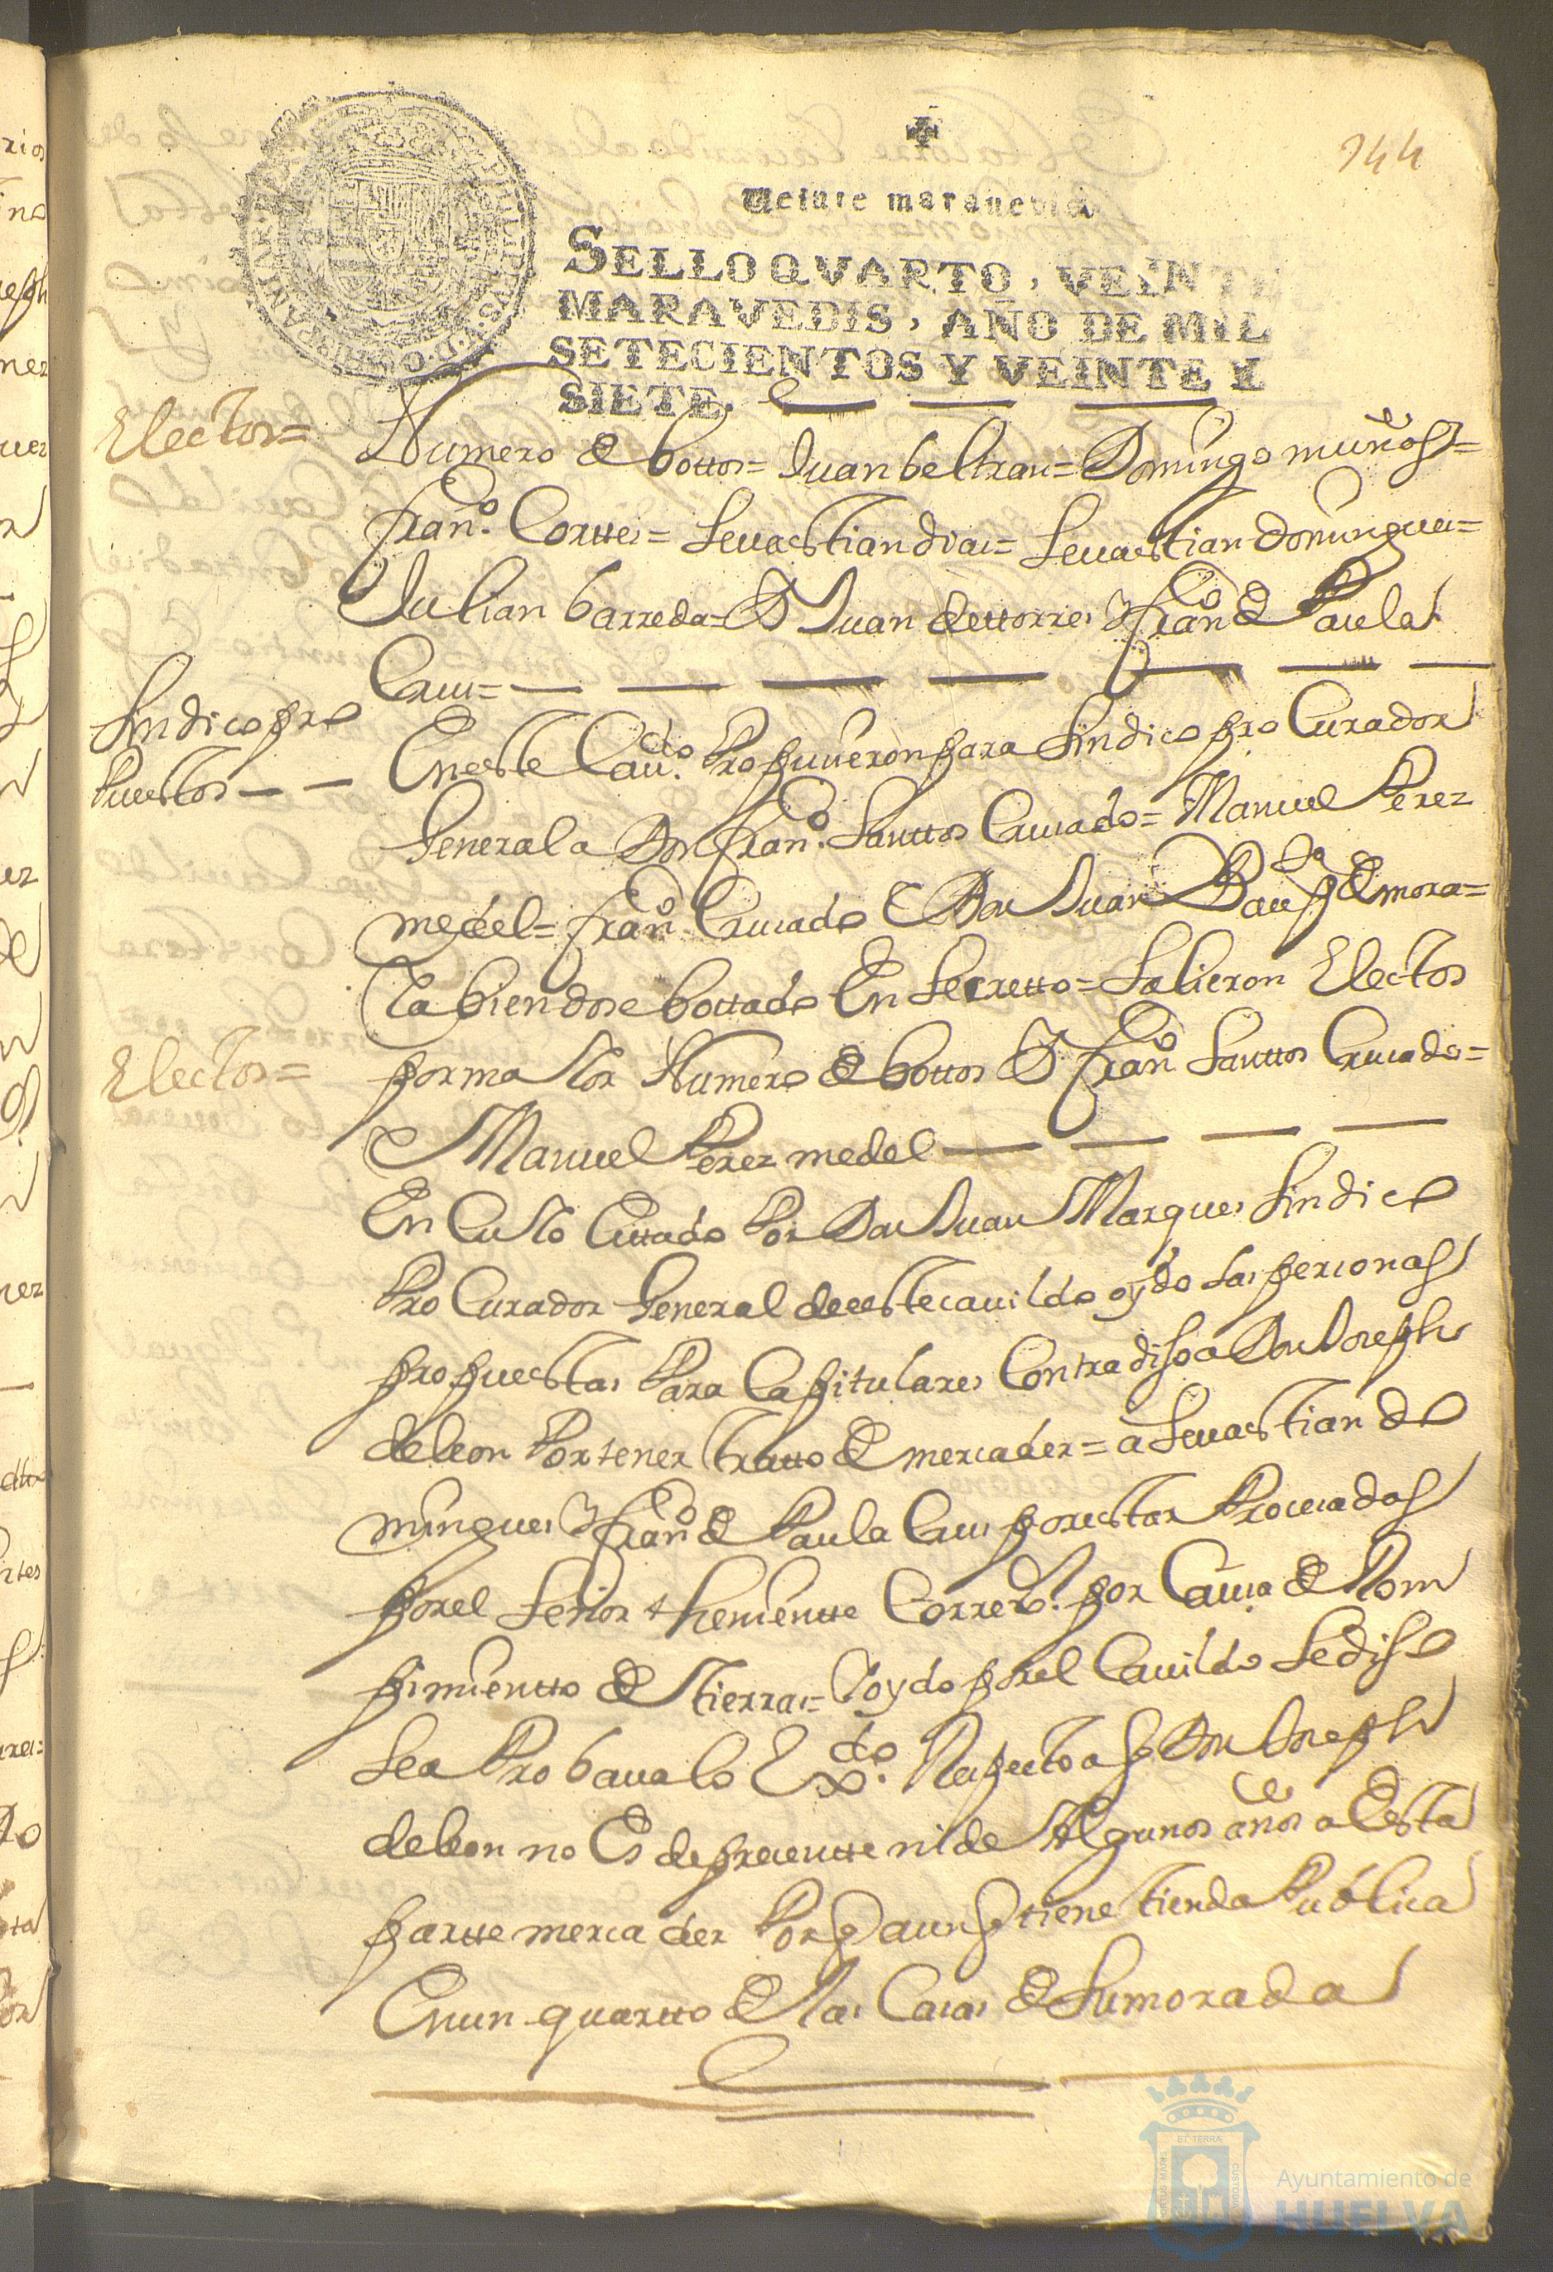 244
Veinte maravedis
SELLO QVARTO, VEINTE
MARAVEDIS, AÑO DE MIL
SETECIENTOS Y VEINTE Y
SIETE.
Electos=
Numero de bottos= Juan beltran= Domingo muños=
franco. Corttes= Sevastian dias= Sevastian dominguez=
Julian barreda= D Juan dettorres y franco de Paula
Crus=
Sindico pro
Puestos
En este Cavdo. Propusieron para Sindico pro Curador
General a Don franco. Santtos Crusado= Manuel Perez
medel= franco Crusado e Don Juan Bauta de mora=
Y abiendose bottado En Secretto= Salieron Electos
Electos=
por maior Numero de bottos D franco Santtos Crusado=
e Manuel Perez medel
En Cuio Estado Por Don Juan Marques Sindico
Pro Curador General de este cavildo oydo las personas
propuestas Para Capitulares Contradiso a Don Joseph
de leon Por tener tratto de mercader= a Sevastian do
mingues y franco de Paula Crus por estar Procesados
por el Señor theniente Corregor. por Causa de Rom
pimientto de tierras= Y oydo por el Cavildo Se diso
Sea Probava lo Exdo. Respecto a q Don Joseph
de leon no Es de presentte ni de Algunos años a Esta
partte mercader Por q aunq tiene tienda Publica
En un quartto de las Casas de Su morada
Ayuntamiento de
HUELVA